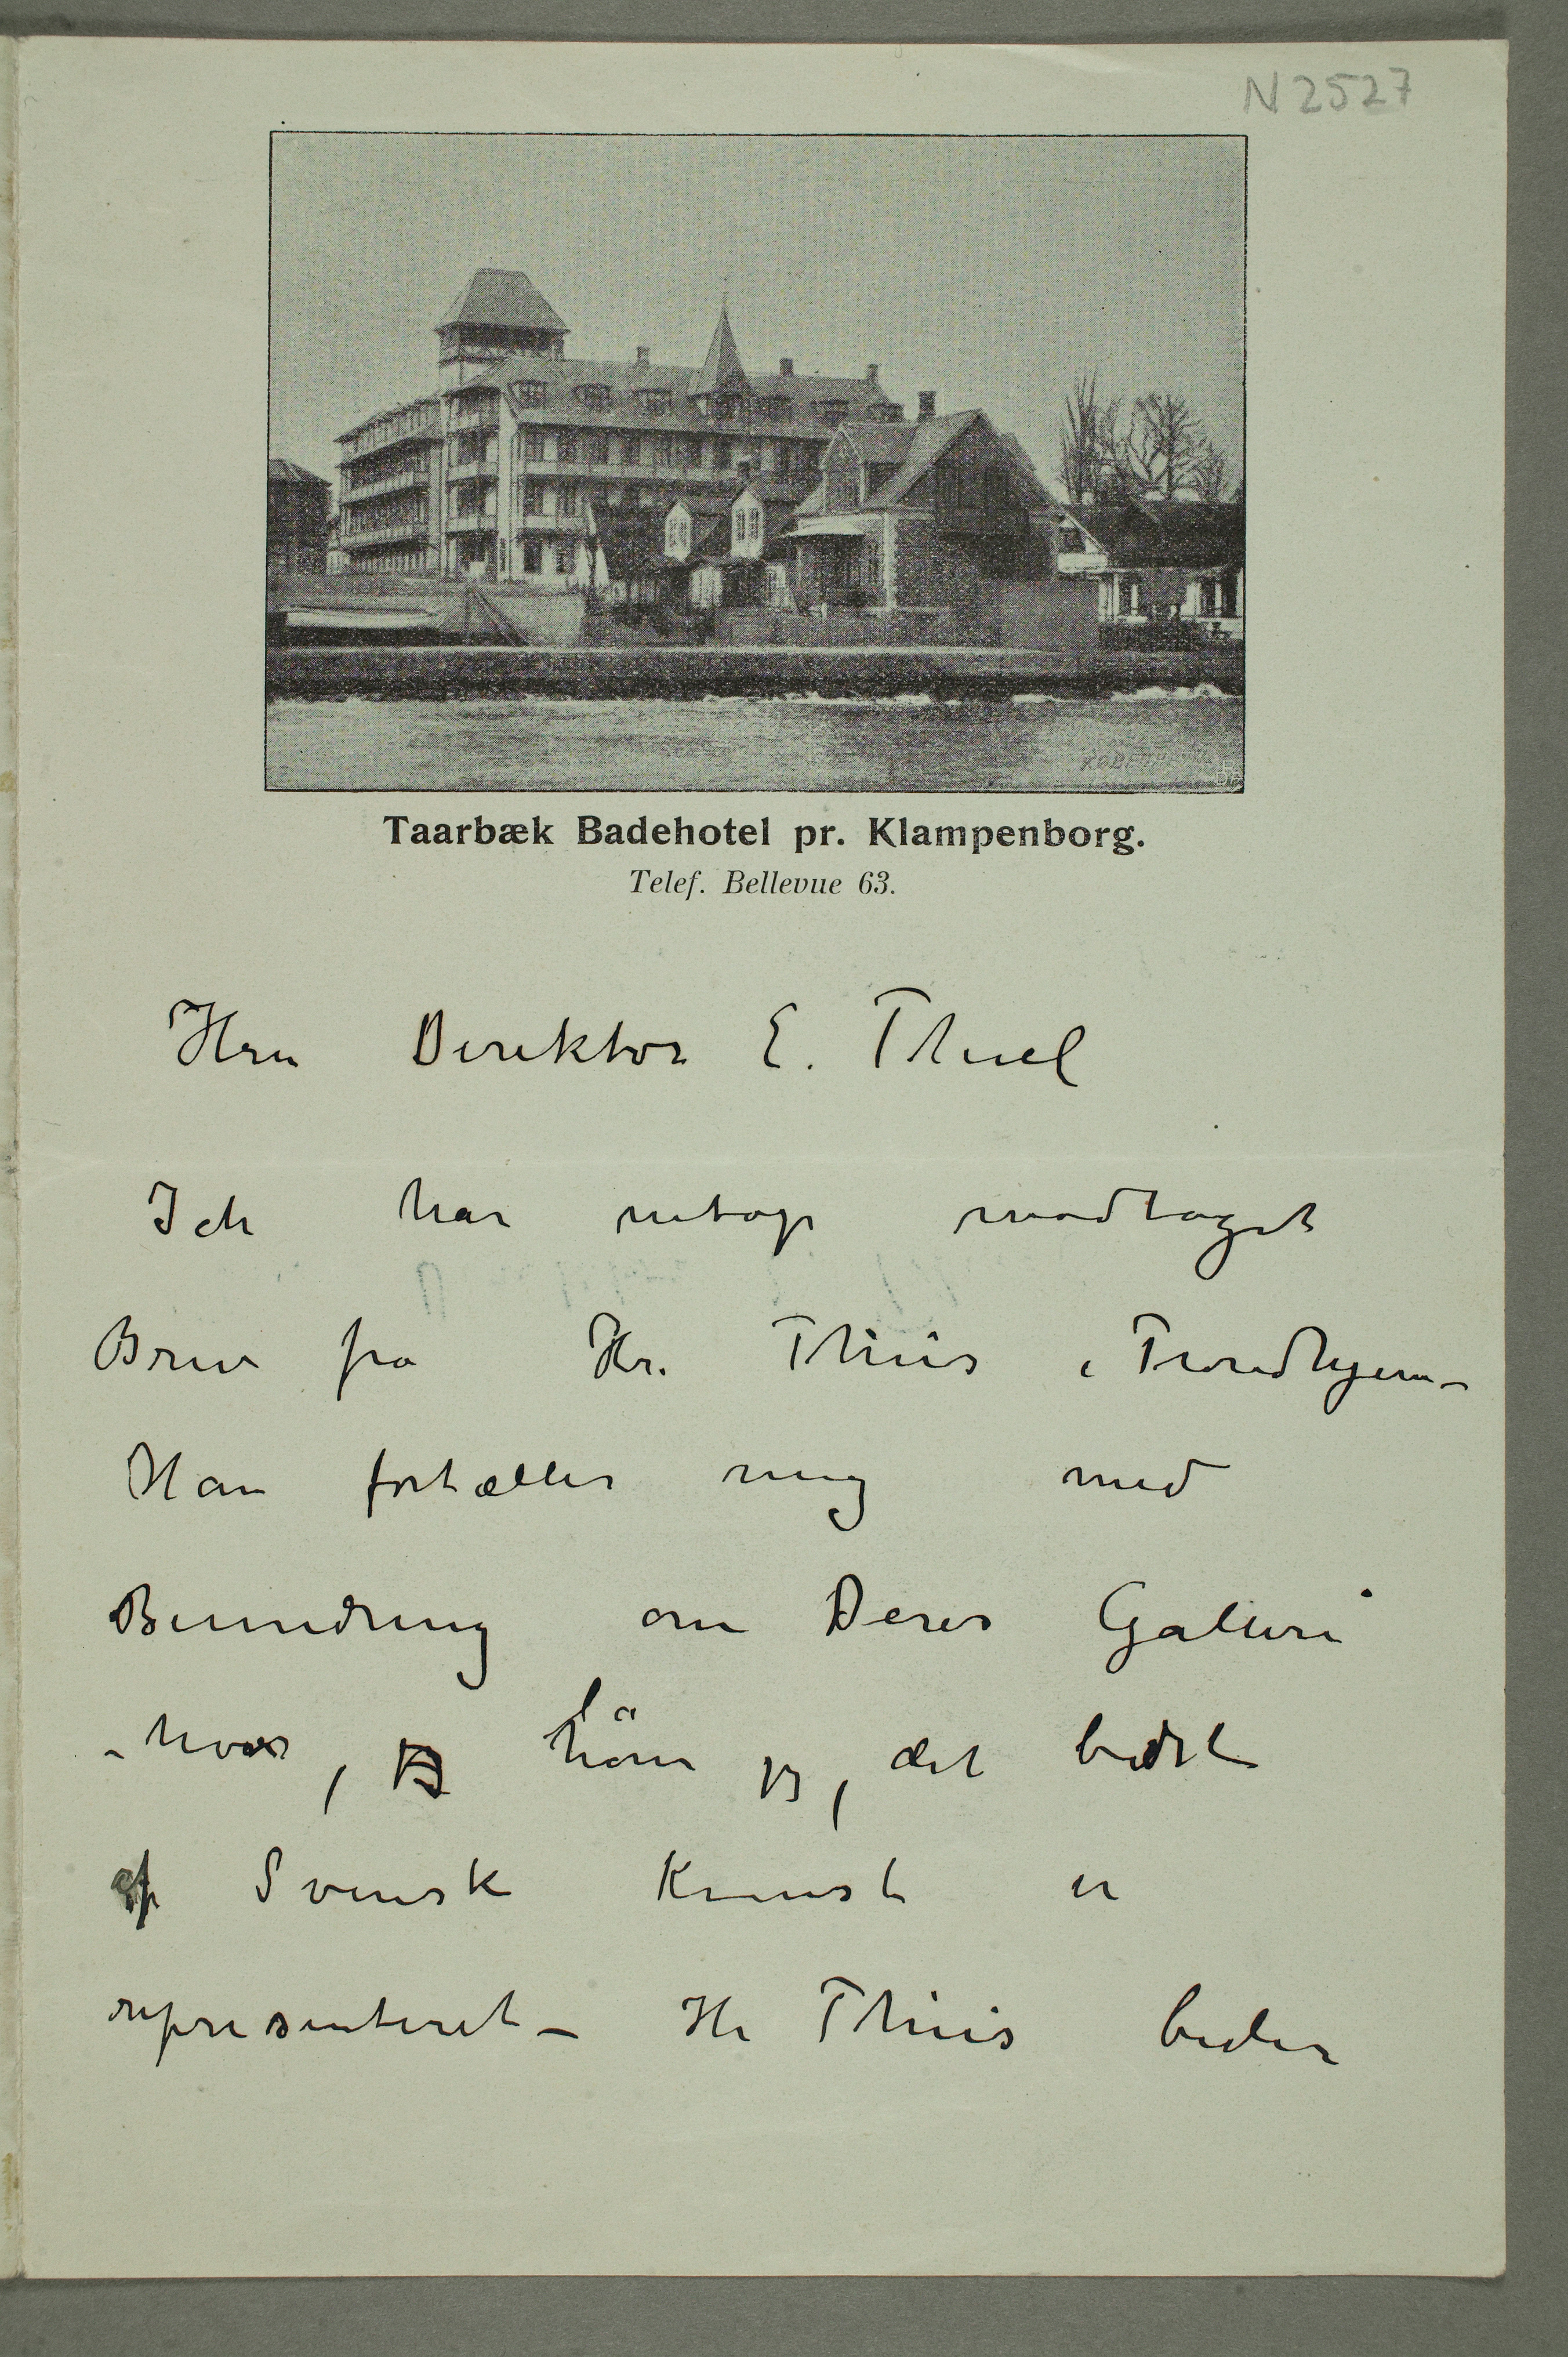 N 2527
KØBENHAVN
Taarbæk Badehotel pr. Klampenborg.
Telef. Bellevue 63.
Herr Direktor E. Thiel
Ich har netop modtaget
Brev fra Hr. Thiis i Trondhjem –
Han fortæller mig med
Beundring om Deres Galleri
– hvor, jeg hører jeg, det bedste
af Svensk Kunst er
representeret – Hr Thiis beder